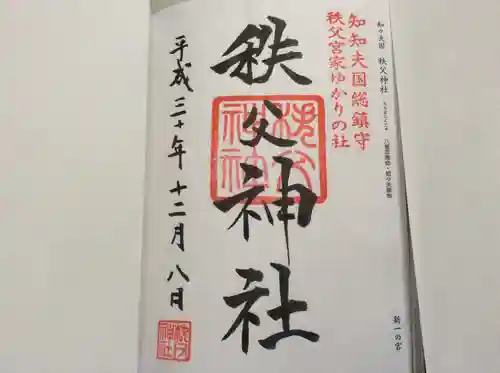 知々夫国 秩父神社
知知夫国総鎮守
秩父宮家ゆかりの社
秩父神社
平成三十年十二月八日
秩父神社
新一の宮